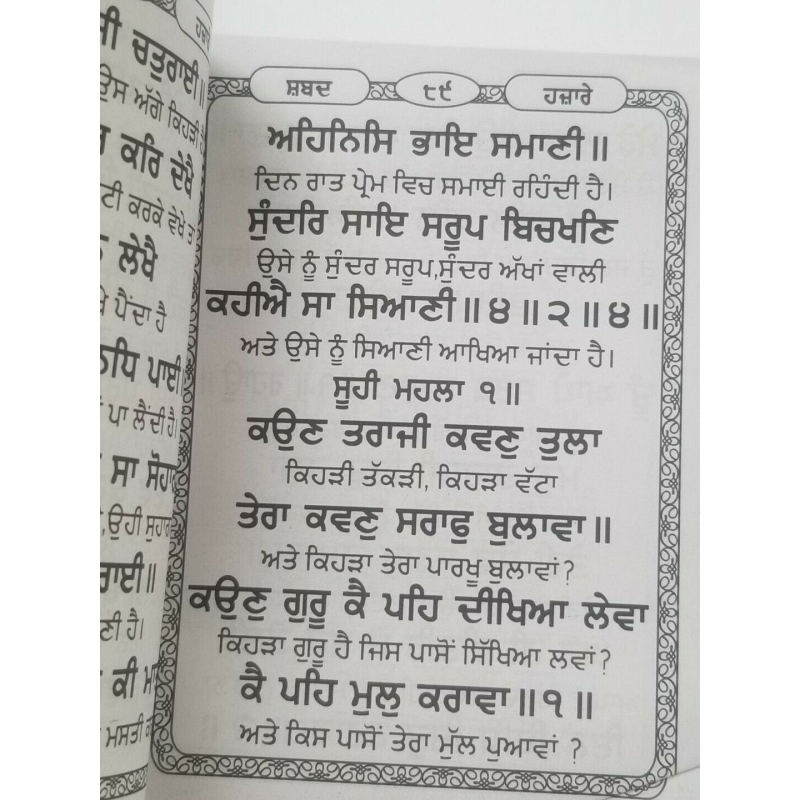 ੀ ਚਤੁਰਾਈ॥
ਉਸ ਅੱਗੇ ਕਿਹੜੀ
ਕਰਿ ਦੇਖੈ
ਟੀ ਕਰਕੇ ਵੇਖੇ ਤਾਂ
ਲੇਖੈ
ਪੈਂਦਾ ਹੈ
ਧਿ ਪਾਈ
ਪਾ ਲੈਂਦੀ ਹੈ।
ਸਾ ਸੋਹਾ
ਉਹੀ ਸੁਹਾ
ਰਾਈ॥
ਣੀ ਹੈ।
ਕੀ ਮਾ
ਮਸਤੀ
ਹਜ਼ਾਰੇ
ਸ਼ਬਦ ੮੯ ਹਜ਼ਾਰੇ
ਅਹਿਨਿਸਿ ਭਾਇ ਸਮਾਣੀ॥
ਦਿਨ ਰਾਤ ਪ੍ਰੇਮ ਵਿਚ ਸਮਾਈ ਰਹਿੰਦੀ ਹੈ।
ਸੁੰਦਰਿ ਸਾਇ ਸਰੂਪ ਬਿਚਖਣਿ
ਉਸੇ ਨੂੰ ਸੁੰਦਰ ਸਰੂਪ,ਸੁੰਦਰ ਅੱਖਾਂ ਵਾਲੀ
ਕਹੀਐ ਸਾ ਸਿਆਣੀ॥੪॥੨॥੪॥
ਅਤੇ ਉਸੇ ਨੂੰ ਸਿਆਣੀ ਆਖਿਆ ਜਾਂਦਾ ਹੈ।
ਸੂਹੀ ਮਹਲਾ ੧॥
ਕਉਣ ਤਰਾਜੀ ਕਵਣੁ ਤੁਲਾ
ਕਿਹੜੀ ਤੱਕੜੀ, ਕਿਹੜਾ ਵੱਟਾ
ਤੇਰਾ ਕਵਣੁ ਸਰਾਫੁ ਬੁਲਾਵਾ॥
ਅਤੇ ਕਿਹੜਾ ਤੇਰਾ ਪਾਰਖੂ ਬੁਲਾਵਾਂ?
ਕਉਣੁ ਗੁਰੂ ਕੈ ਪਹਿ ਦੀਖਿਆ ਲੇਵਾ
ਕਿਹੜਾ ਗੁਰੂ ਹੈ ਜਿਸ ਪਾਸੋਂ ਸਿੱਖਿਆ ਲਵਾਂ?
ਕੈ ਪਹਿ ਮੁਲੁ ਕਰਾਵਾ॥੧॥
ਅਤੇ ਕਿਸ ਪਾਸੋਂ ਤੇਰਾ ਮੁੱਲ ਪੁਆਵਾਂ ?